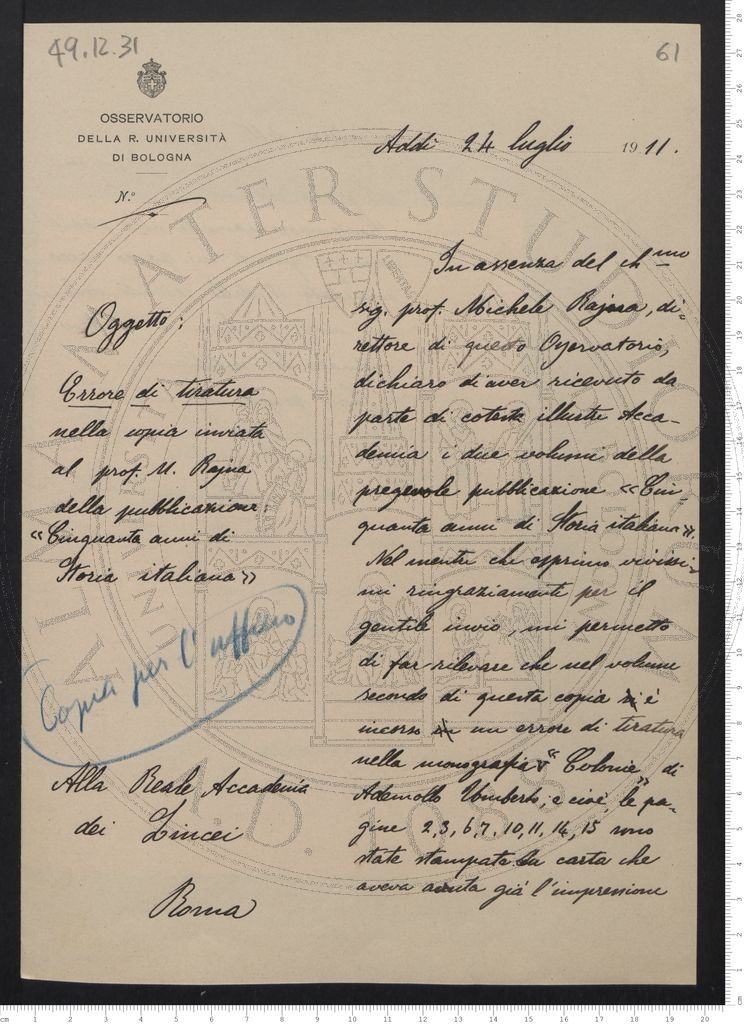 49.12.31
61
OSSERVATORIO
DELLA R. UNIVERSITÀ
DI BOLOGNA
N.º
Addì 24 luglio 1911.
Oggetto:
Errore di tiratura
nella copia inviata
al prof. M. Rajna
della pubblicazione:
«Cinquanta anni di
Storia italiana»
Copia per l'ufficio
Alla Reale Accademia
dei Lincei
Roma
In assenza del ch.mo
sig. prof. Michele Rajna, di=
rettore di questo Osservatorio,
dichiaro di aver ricevuto da
parte di cotesta illustre Acca-
demia i due volumi della
pregevole pubblicazione «Cin-
quanta anni di Storia italiana».
Nel mentre che esprimo vivissi-
mi ringraziamenti per il
gentile invio, mi permetto
di far rilevare che nel volume
secondo di questa copia è
incorso un errore di tiratura
nella monografia "Colonie" di
Ademollo Umberto; e cioè, le pa-
gine 2,3,6,7,10,11,14,15 sono
state stampate su carta che
aveva avuta già l'impressione
ALMA MATER STUDIORUM
A.D. 1088